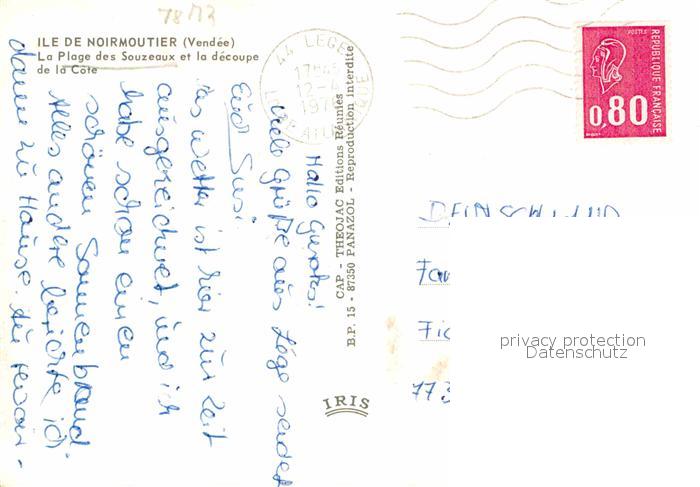 78/73
ILE DE NOIRMOUTIER (Vendée)
La Plage des Souzeaux et la découpe
de la Côte
44 LEGE
12-4
1976
LOIRE ATLANTIQUE
POSTES
REPUBLIQUE FRANÇAISE
0,80
Hallo
viele Grüße aus Lége sendet
Euch Susi.
Das Wetter ist hier zur Zeit
ausgezeichnet, und ich
habe schon einen
schönen Sonnenbrand
Alles andere berichte ich
dann zu Hause. Au revoir -
CAP - THEOJAC Editions Réunies
B.P. 15 - 87350 PANAZOL - Reproduction interdite
IRIS
Fa
773
privacy protection
Datenschutz